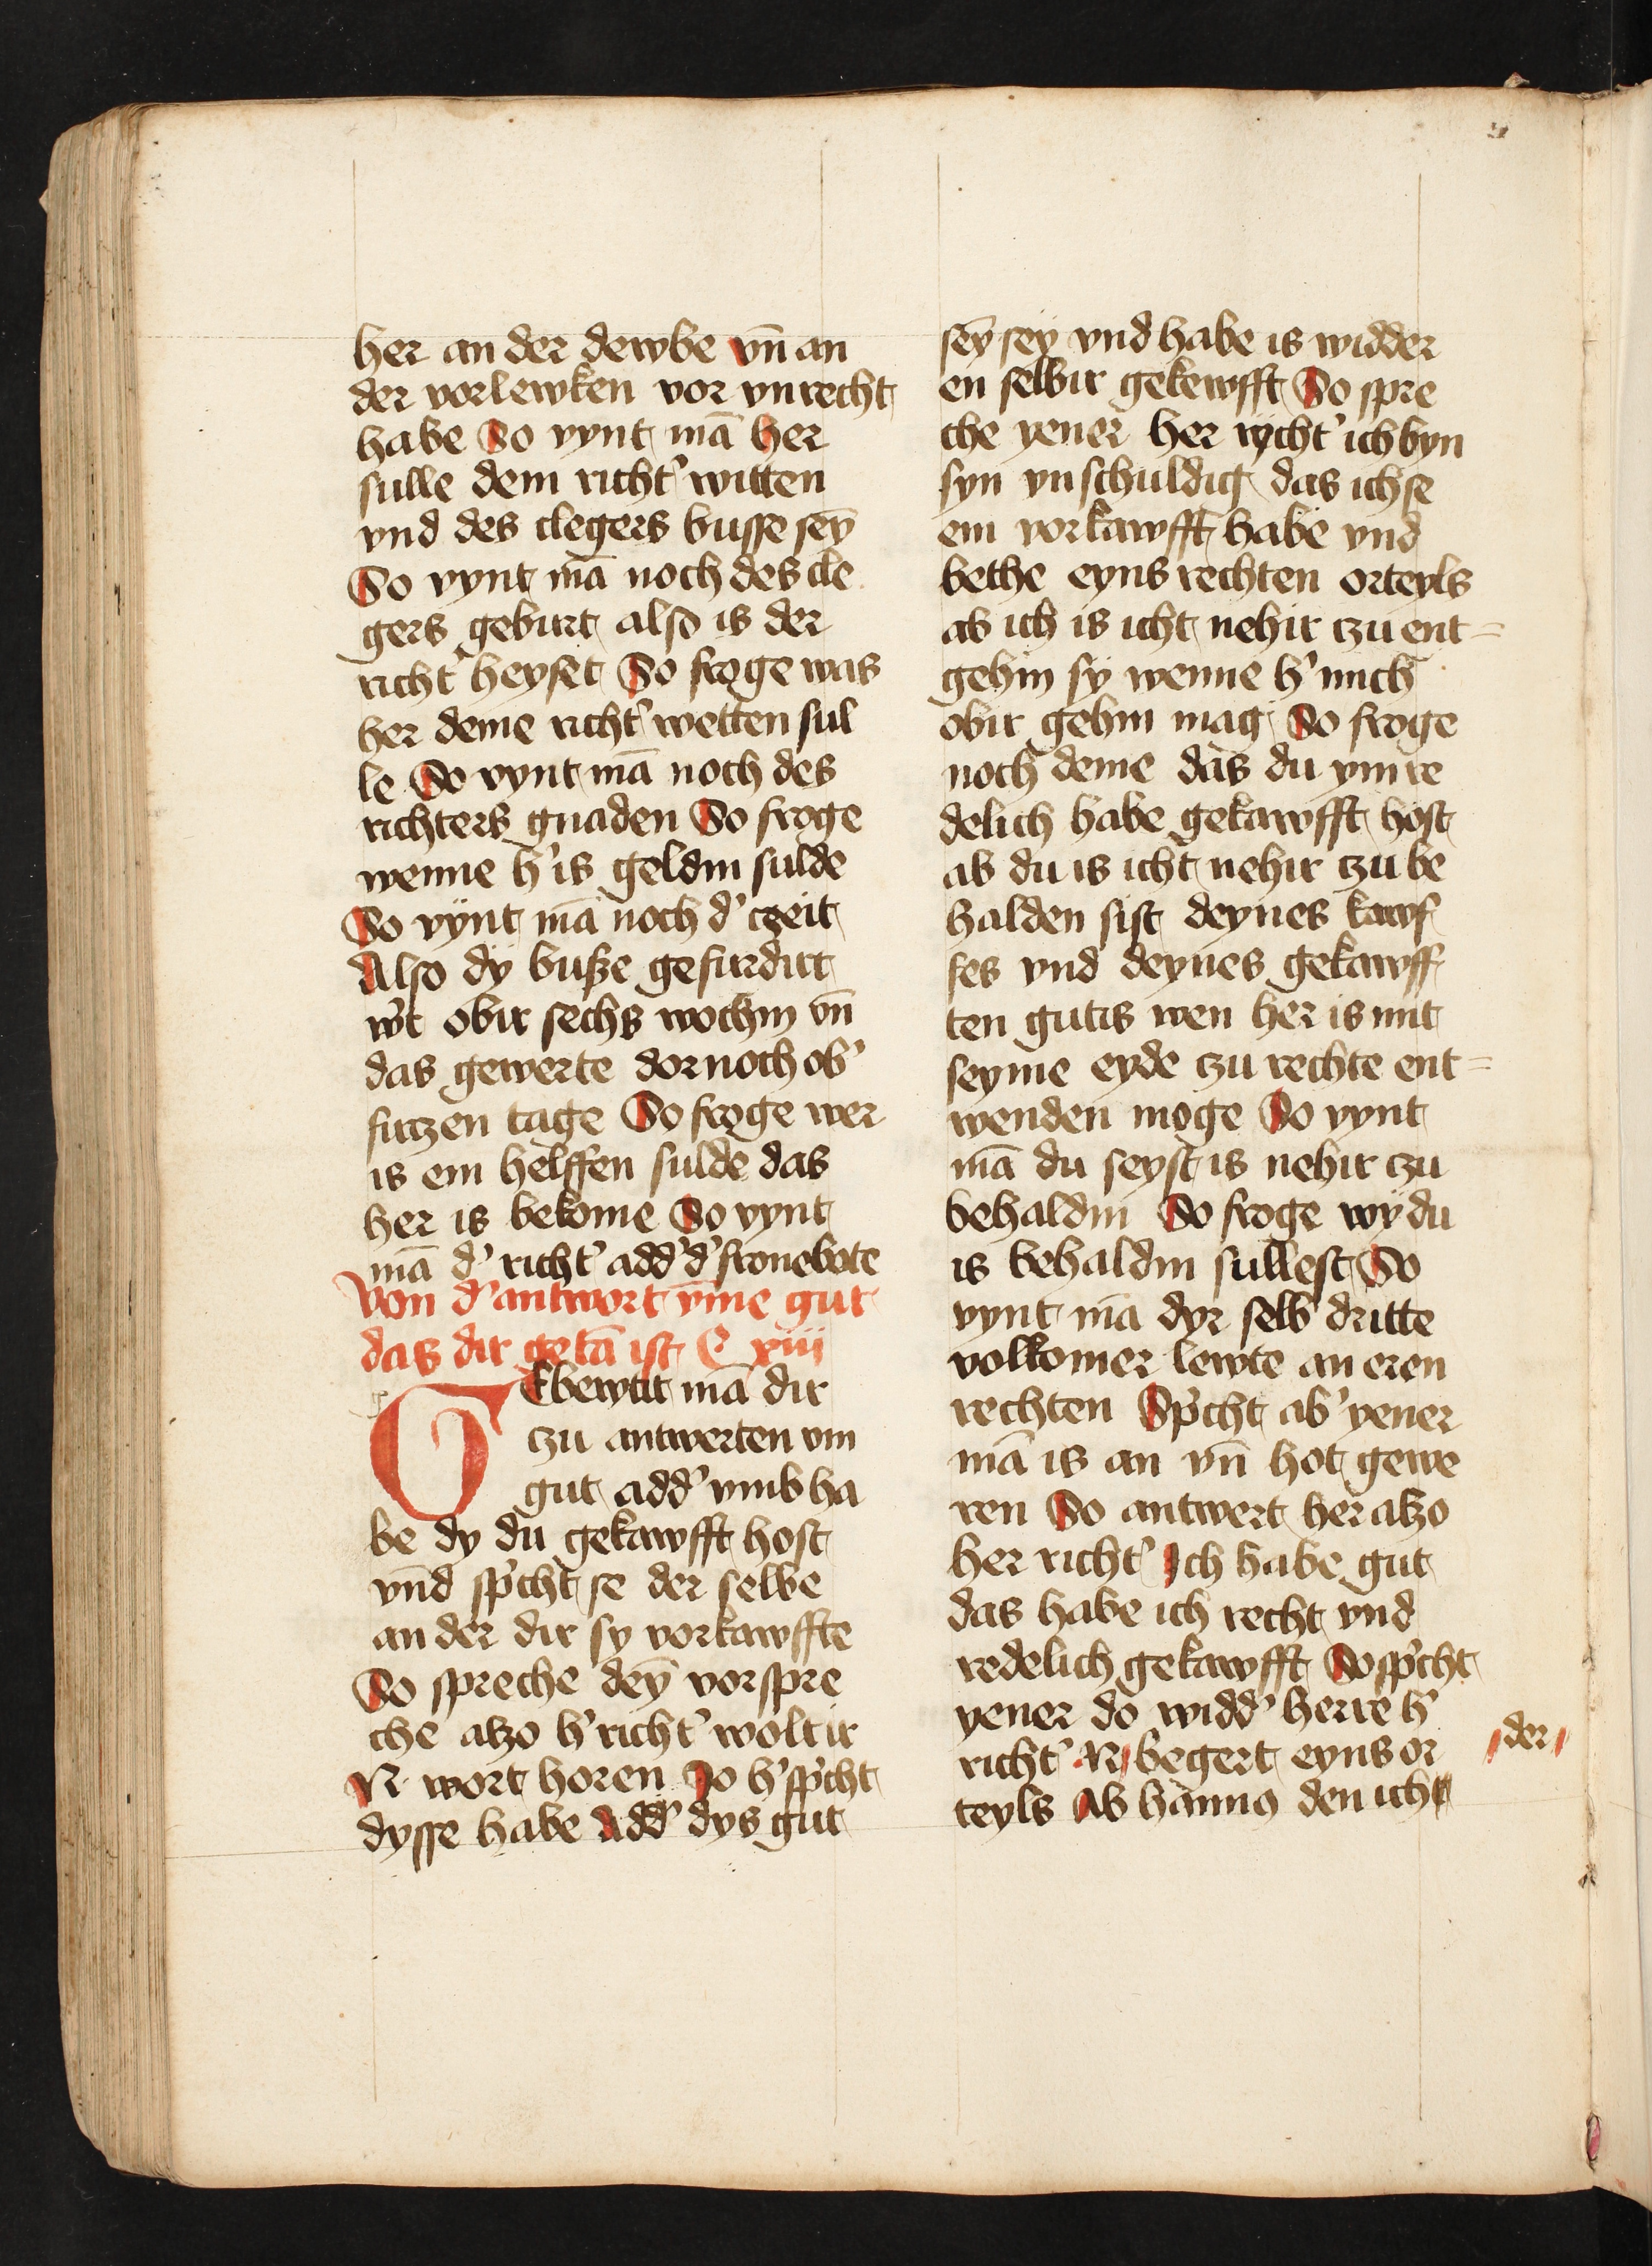 her an der dewbe vn̄ an
der vorlewken vor vnrecht
habe So vynt mā her
sulle dem richt' witten
vnd des clegers busse seȳ
So vynt mā noch des cle
gers geburt also is der
richt' heyset So froge was
her deme richt' wetten sul
le So vynt mā noch des
richters gnaden So froge
wenne h' is geldin sulde
So vÿnt mā noch d' czeit
Also dÿ busze gefurdirt
w't obir sechs wochin vn̄
das gewerte dornoch ob'
firczen tage So froge wer
is em helffen sulde das
her is bekome So vynt
mā d' richt' add' d' fronebote
Von d' antwort v̄me gut
das dir getā ist C xiii
GEbewtit mā dir
czu antwerten vm
gut add' vmb ha
be dy du gekawfft host
vnd sp'cht se der selbe
an der dir sy vorkawffte
So spreche deȳ vorspre
che alzo h' richt' wolt ir
N wort horen Jo h' sp'cht
dysse habe Add' dys gut
seȳ seÿ vnd habe is widder
en selbir gekewfft So spre
che yener her rycht' ich byn
syn vnschuldig das ich se
em vorkawfft habe vnd
bethe eyns rechten orteyls
ab ich is icht nehir czu ent=
gehin sÿ wenne h' mich
obir gehin mag So froge
noch deme das du ym re
delich habe gekawfft host
ab du is icht nehir czu be
halden sist deynes kawf
fes vnd deynes gekawff
ten gutis wen her is mit
seyme eyde czu rechte ent=
wenden moge So vynt
mā du seyst is nehir czu
behaldin So froge wÿ du
is behaldin sullest So
vynt mā dyr selb' dritte
volkomer lewte an eren
rechten Sp'cht ab' yener
mā is an vn̄ hot gewe
ren So antwert her alzo
her richt' Ich habe gut
das habe ich recht vnd
redelich gekawfft So sp'cht
yener do widd' herre h'
richt' N begert eyns or
der
teyls Ab hannus den icht